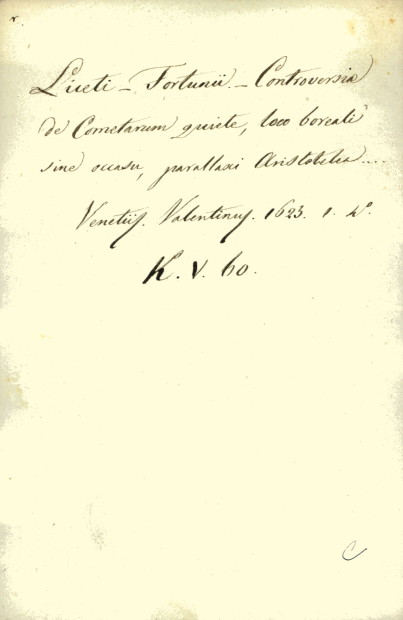 r.
Liceti - Fortunii. - Controversia
de Cometarum quiete, loco boreali
sine occasu, parallaxi Aristotelea....
Venetiis. Valentinus. 1623. 1. 4°.
K. V. 60.
C